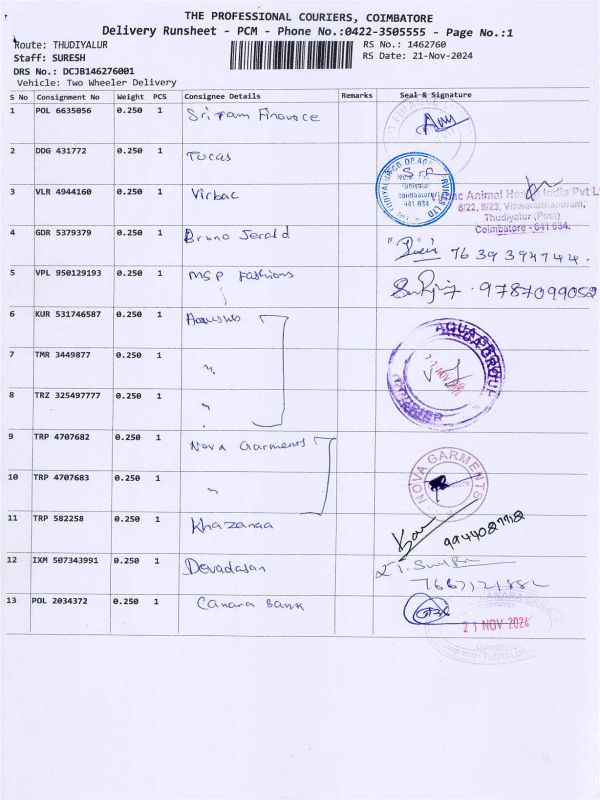 THE PROFESSIONAL COURIERS, COIMBATORE
Delivery Runsheet - PCM - Phone No.:0422-3505555 - Page No.:1
Route: THUDIYALUR
RS No.: 1462760
Staff: SURESH
RS Date: 21-Nov-2024
DRS No.: DCJB146276001
Vehicle: Two Wheeler Delivery
S No Consignment No Weight PCS Consignee Details Remarks Seal & Signature
1 POL 6635056 0.250 1 Sriram Finance
2 DDG 431772 0.250 1 Tucas
3 VLR 4944160 0.250 1 Virbac
Animal Health India Pvt
8/22, 8/23, Viswanathapuram,
Thudiyalur (Post)
Coimbatore - 641 034.
4 GDR 5379379 0.250 1 Bruno Jerald 7639394744.
5 VPL 950129193 0.250 1 MSP Fashions 9787099052
6 KUR 531746587 0.250 1
AQUA GROUP
7 TMR 3449877 0.250 1 "
8 TRZ 325497777 0.250 1 "
9 TRP 4707682 0.250 1 Nova Garments
NOVA GARMENTS
10 TRP 4707683 0.250 1 "
11 TRP 582258 0.250 1 Khazanaa
12 IXM 507343991 0.250 1 Devadasan
13 POL 2034372 0.250 1 Canara Bank
21 NOV 2024